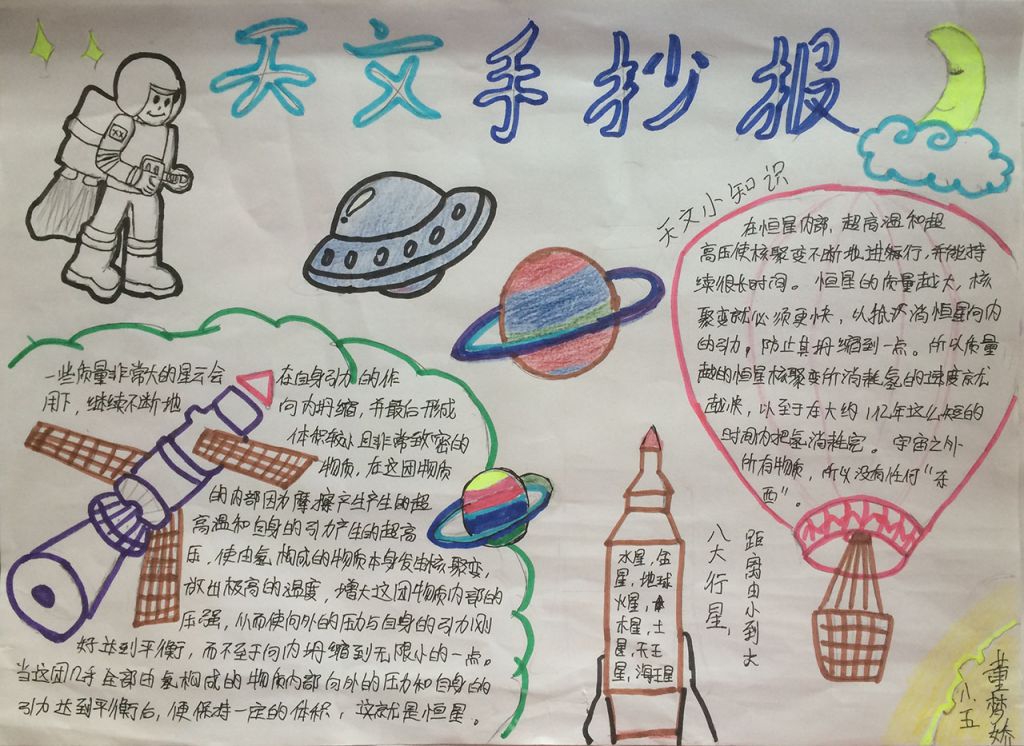 天文手抄报
天文小知识
在恒星内部，超高温和超
高压使核聚变不断地进行，并能持
续很长时间。恒星的质量越大，核
聚变就必须更快，以抵消恒星向内
的引力，防止其坍缩到一点。所以质量
越的恒星核聚变所消耗氢的速度就
越快，以至于在大约1亿年这么短的
时间内把氢消耗完。宇宙之外
所有物质，所以没有任何“东
西”。
一些质量非常大的星云会
在自身引力的作
用下，继续不断地
向内坍缩，并最后形成
体积较小且非常致密的
物质，在这团物质
的内部因为摩擦产生产生的超
高温和自身的引力产生的超高
压，使由氢构成的物质本身发生核聚变，
放出极高的温度，增大这团物质内部的
压强，从而使向外的压力与自身的引力刚
好达到平衡，而不至于向内坍缩到无限小的一点。
当这团几乎全部由氢构成的物质内部向外的压力和自身的
引力达到平衡后，便保持一定的体积，这就是恒星。
水星，金
星，地球
火星，
木星，土
星，天王
星，海王星
八大行星，
距离由小到大
董梦娇
小五